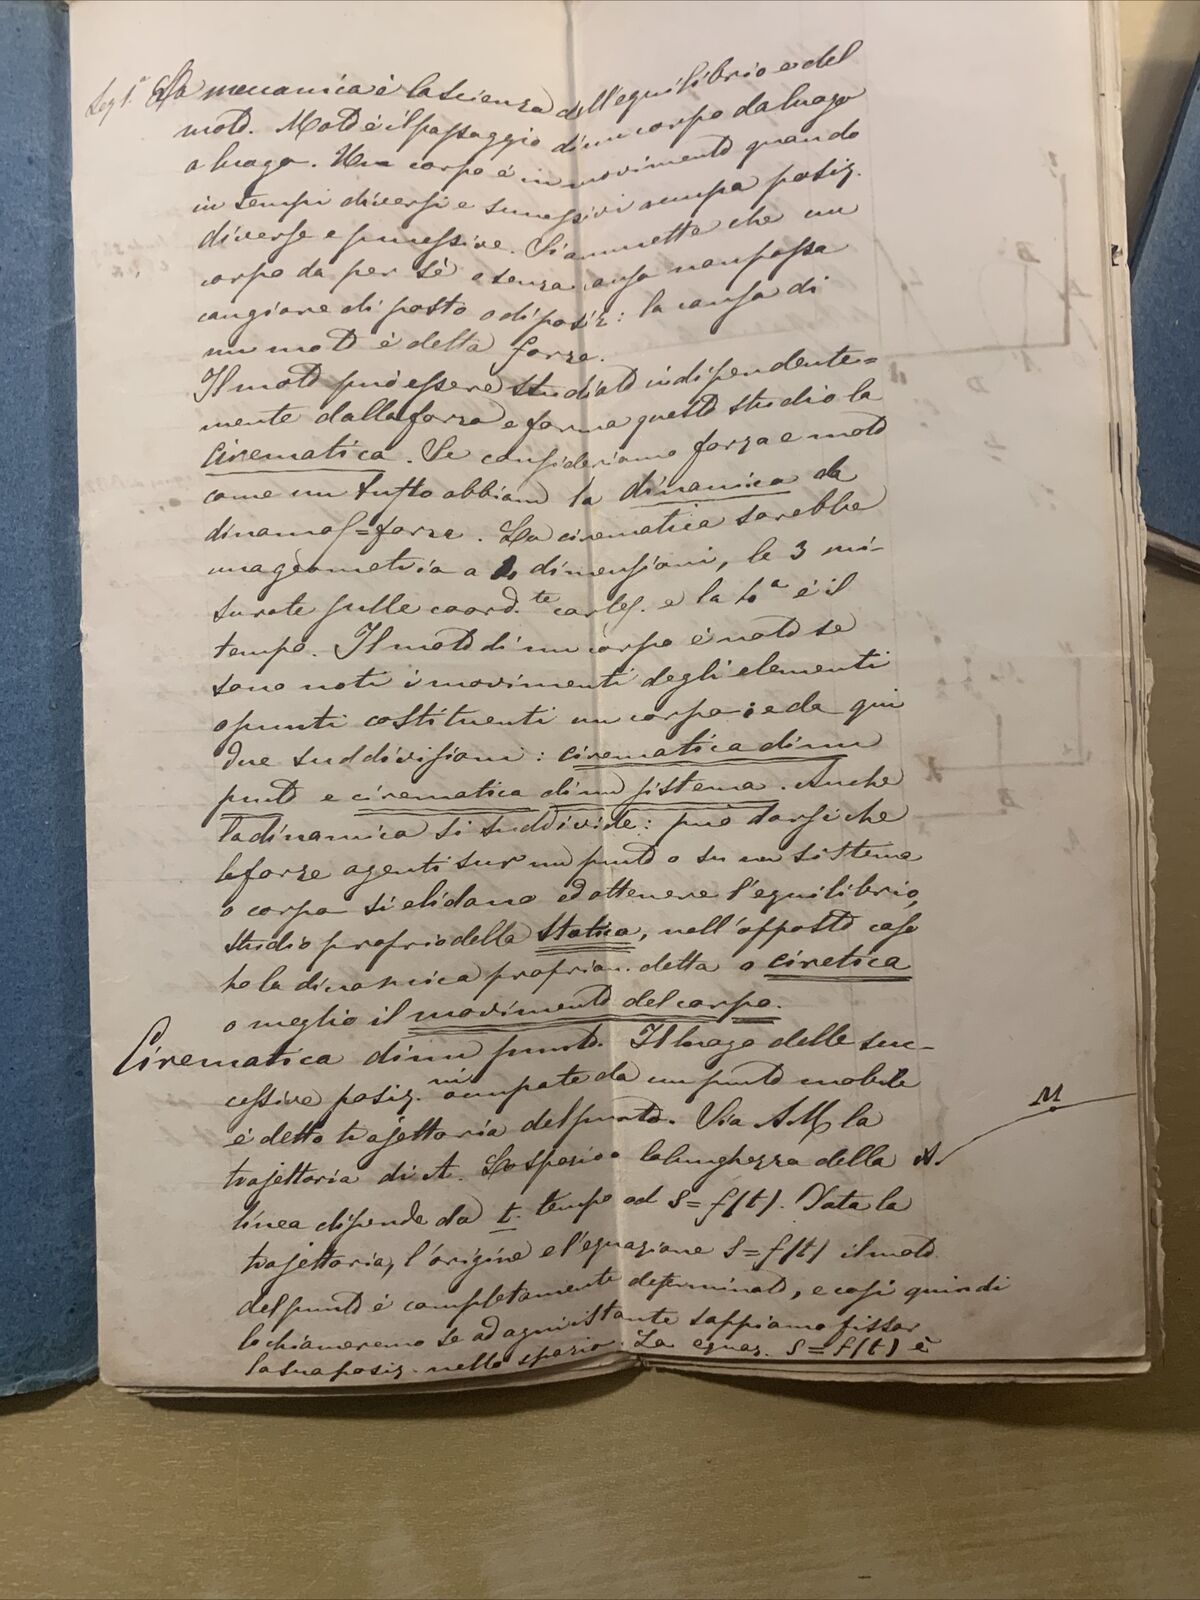 Leg 1ª La meccanica è la scienza dell'equilibrio e del
moto. Moto è il passaggio di un corpo da luogo
a luogo. Un corpo è in movimento quando
in tempi diversi e successivi occupa posiz.
diverse e successive. Si ammette che un
corpo da per sè o senza causa non possa
cangiare di posto o di posiz: la causa di
un moto è detta forza.
Il moto può essere studiato indipendente=
mente dalla forza e forma questo studio la
Cinematica. Se consideriamo forza e moto
come un tutto abbiam la dinamica da
dinamos=forza. La cinematica sarebbe
una geometria a dimensioni, le 3 mi-
surate sulle coord.te cartes. e la 4ª è il
tempo. Il moto di un corpo è noto se
sono noti i movimenti degli elementi
o punti costituenti un corpo: e da qui
due suddivisioni: cinematica di un
punto e cinematica di un sistema. Anche
la dinamica si suddivide: può darsi che
le forze agenti sur un punto o su un sistema
o corpo si elidano ed ottenere l'equilibrio,
studio proprio della Statica, nell'opposto caso
ho la dinamica propriam. detta o cinetica
o meglio il movimento del corpo.
Cinematica di un punto. Il luogo delle suc-
cessive posiz.ni occupate da un punto mobile
è detto trajettoria del punto. Sia AM la
trajettoria di A. Lo spazio o la lunghezza della
linea dipende da t. tempo od S=f(t). Data la
trajettoria, l'origine e l'equazione S=f(t) il moto
del punto è completamente determinato, e così quindi
lo chiameremo se ad ogni istante sappiamo fissar
la sua posiz. nello spazio. La equaz. S=f(t) è
M
A.